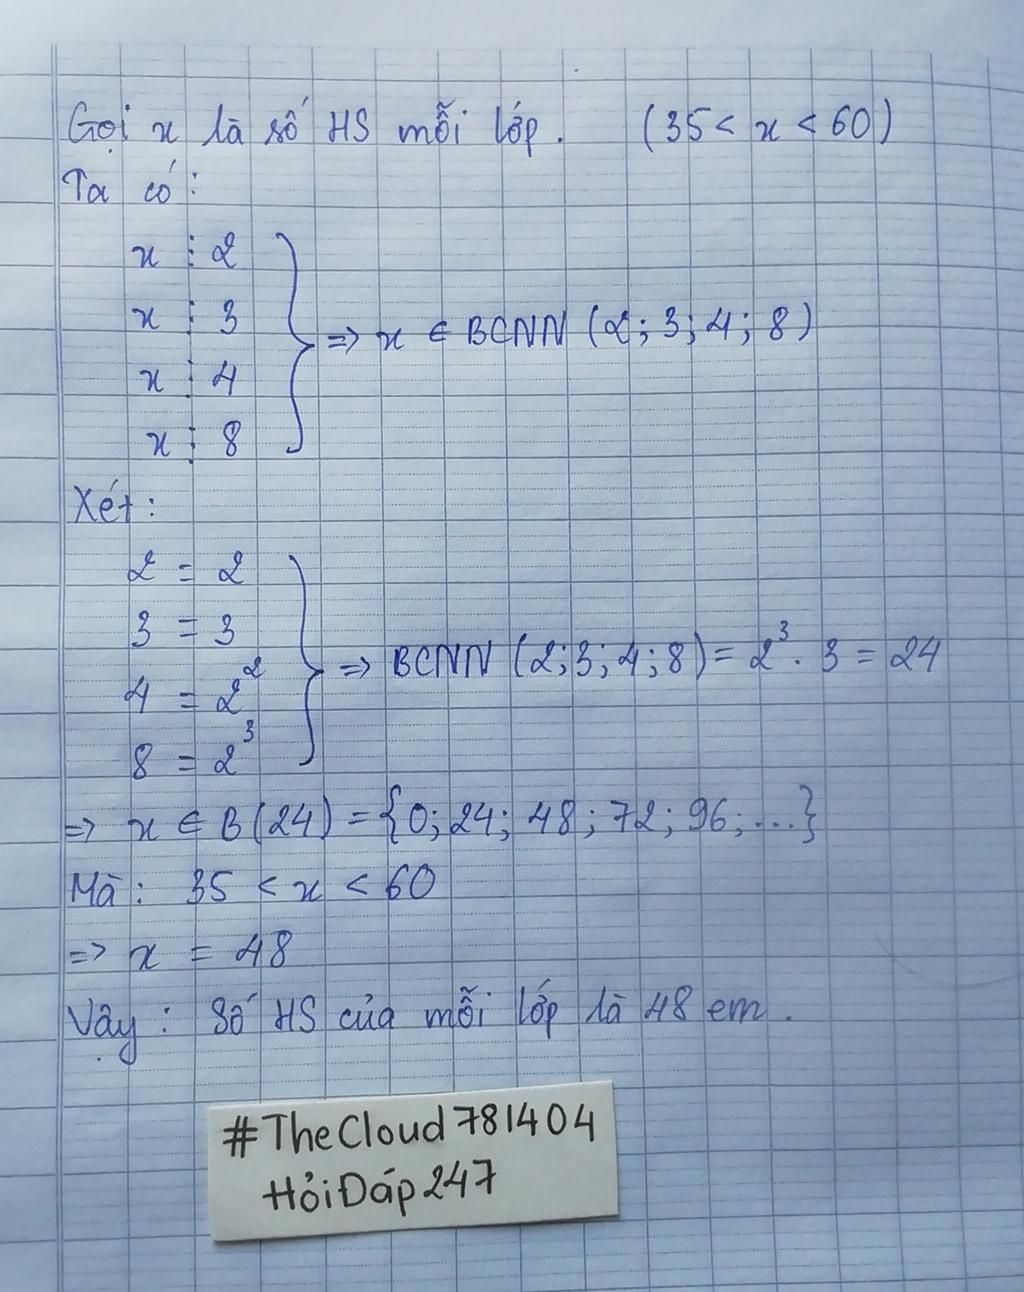 Gọi x là số HS mỗi lớp. (35 < x < 60)
Ta có:
x ⋮ 2
x ⋮ 3
x ⋮ 4
x ⋮ 8
=> x ∈ BCNN (2; 3; 4; 8)
Xét:
2 = 2
3 = 3
4 = 2²
8 = 2³
=> BCNN (2; 3; 4; 8) = 2³. 3 = 24
=> x ∈ B(24) = {0; 24; 48; 72; 96; ...}
Mà: 35 < x < 60
=> x = 48
Vậy: Số HS của mỗi lớp là 48 em.
#TheCloud781404
HỏiĐáp247